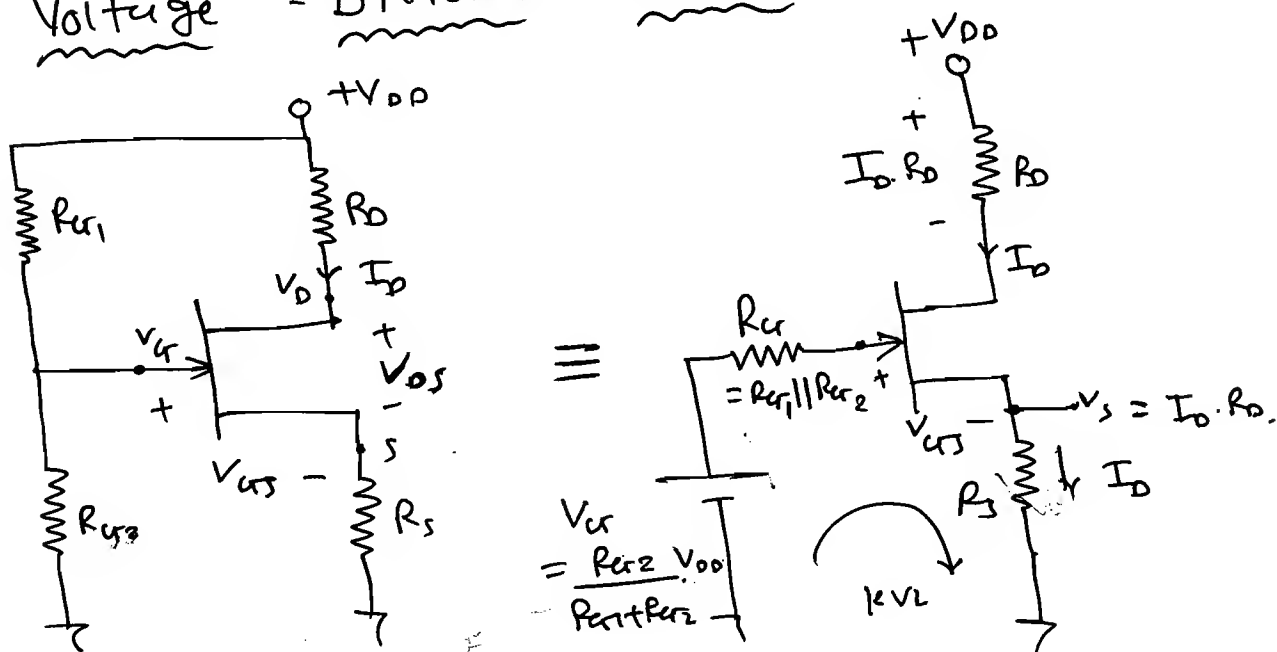 Voltage -
+VDD
+VDD
RG1
RD
VD
ID
VG
+
+
VDS
-
S
VGS -
RG2
RS
≡
+
ID.RD
-
RD
ID
RG
= RG1 || RG2
+
VGS -
VS = ID.RD.
RS
ID
VG
= RG2 VDD
RG1+RG2
KVL